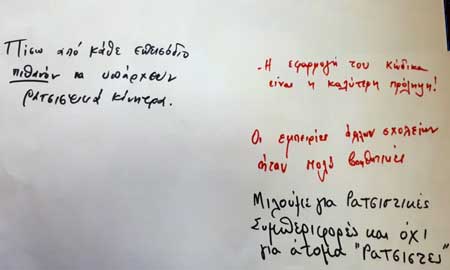 Πίσω από κάθε επεισόδιο
πιθανόν να υπάρχουν
ρατσιστικά κίνητρα.
- Η εφαρμογή του κώδικα
είναι η καλύτερη πρόληψη!
Οι εμπειρίες άλλων σχολείων
ήταν πολύ βοηθητικές
Μιλούμε για Ρατσιστικές
Συμπεριφορές και όχι
για άτομα "Ρατσιστές"